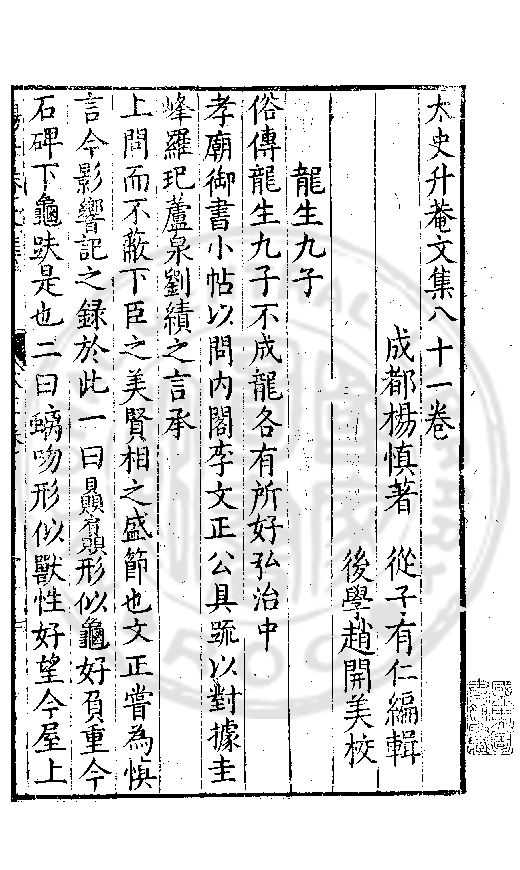 太史升菴文集八十一卷
成都楊慎著 從子有仁編輯
後學趙開美校
龍生九子
俗傳龍生九子不成龍各有所好弘治中
孝廟御書小帖以問內閣李文正公具疏以對據圭
峰羅玘蘆泉劉績之言承
上問而不蔽下臣之美賢相之盛節也文正嘗為慎
言今影響記之録於此一曰贔屭形似龜好負重今
石碑下龜趺是也二曰螭吻形似獸性好望今屋上